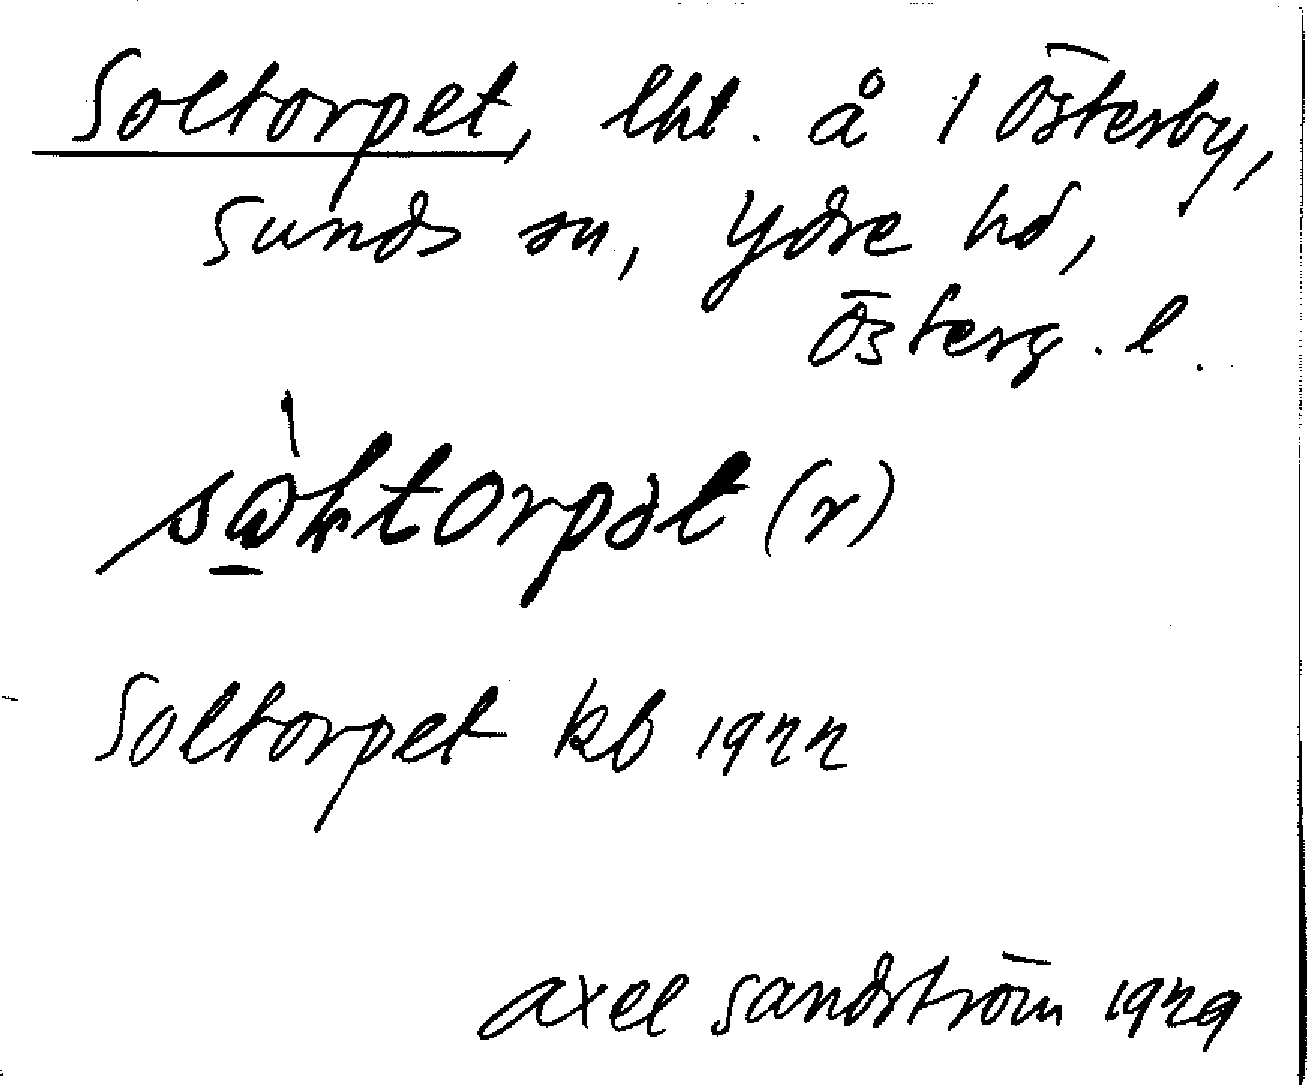 Soltorpet, lht. å 1 Österby,
Sunds sn, Ydre hd,
Österg. l.
(r)
Soltorpet kb 1922
Axel Sandström 1929